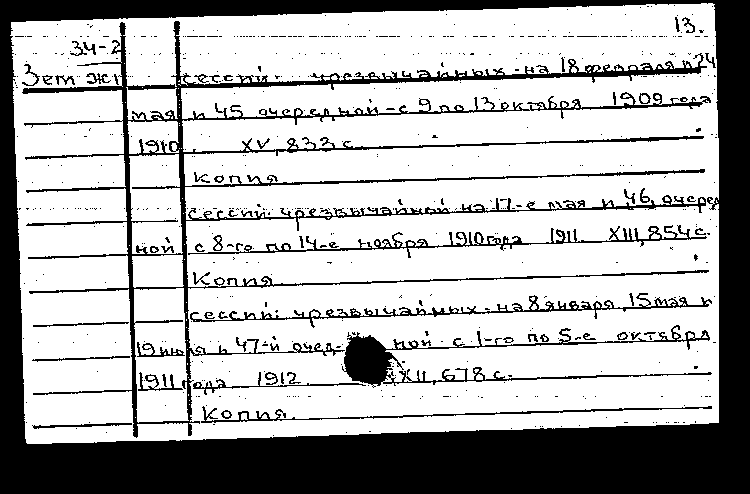 13.
34-2
Зем жі сессий: чрезвычайных - на 18 февраля и 24
мая и 45 очередной - с 9 по 13 октября 1909 года
1910. XV, 833 с.
Копия.
сессий: чрезвычайной на 17-е мая и 46, очеред
ной с 8-го по 14-е ноября 1910 года 1911. XIII, 854 с.
Копия.
сессий: чрезвычайных - на 8 января, 15 мая и
19 июля и 47-й очед- ной с 1-го по 5-е октября
1911 года 1912. XXII, 678 с.
Копия.